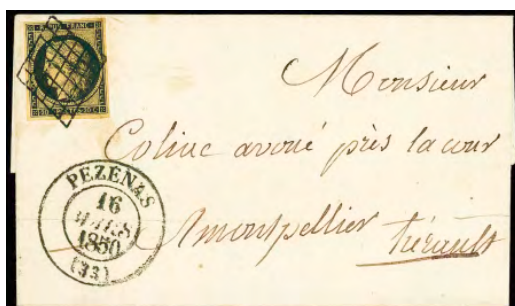 Monsieur
avoué près la cour
PEZENAS
16
MARS
1850
(33)
Montpellier
hérault